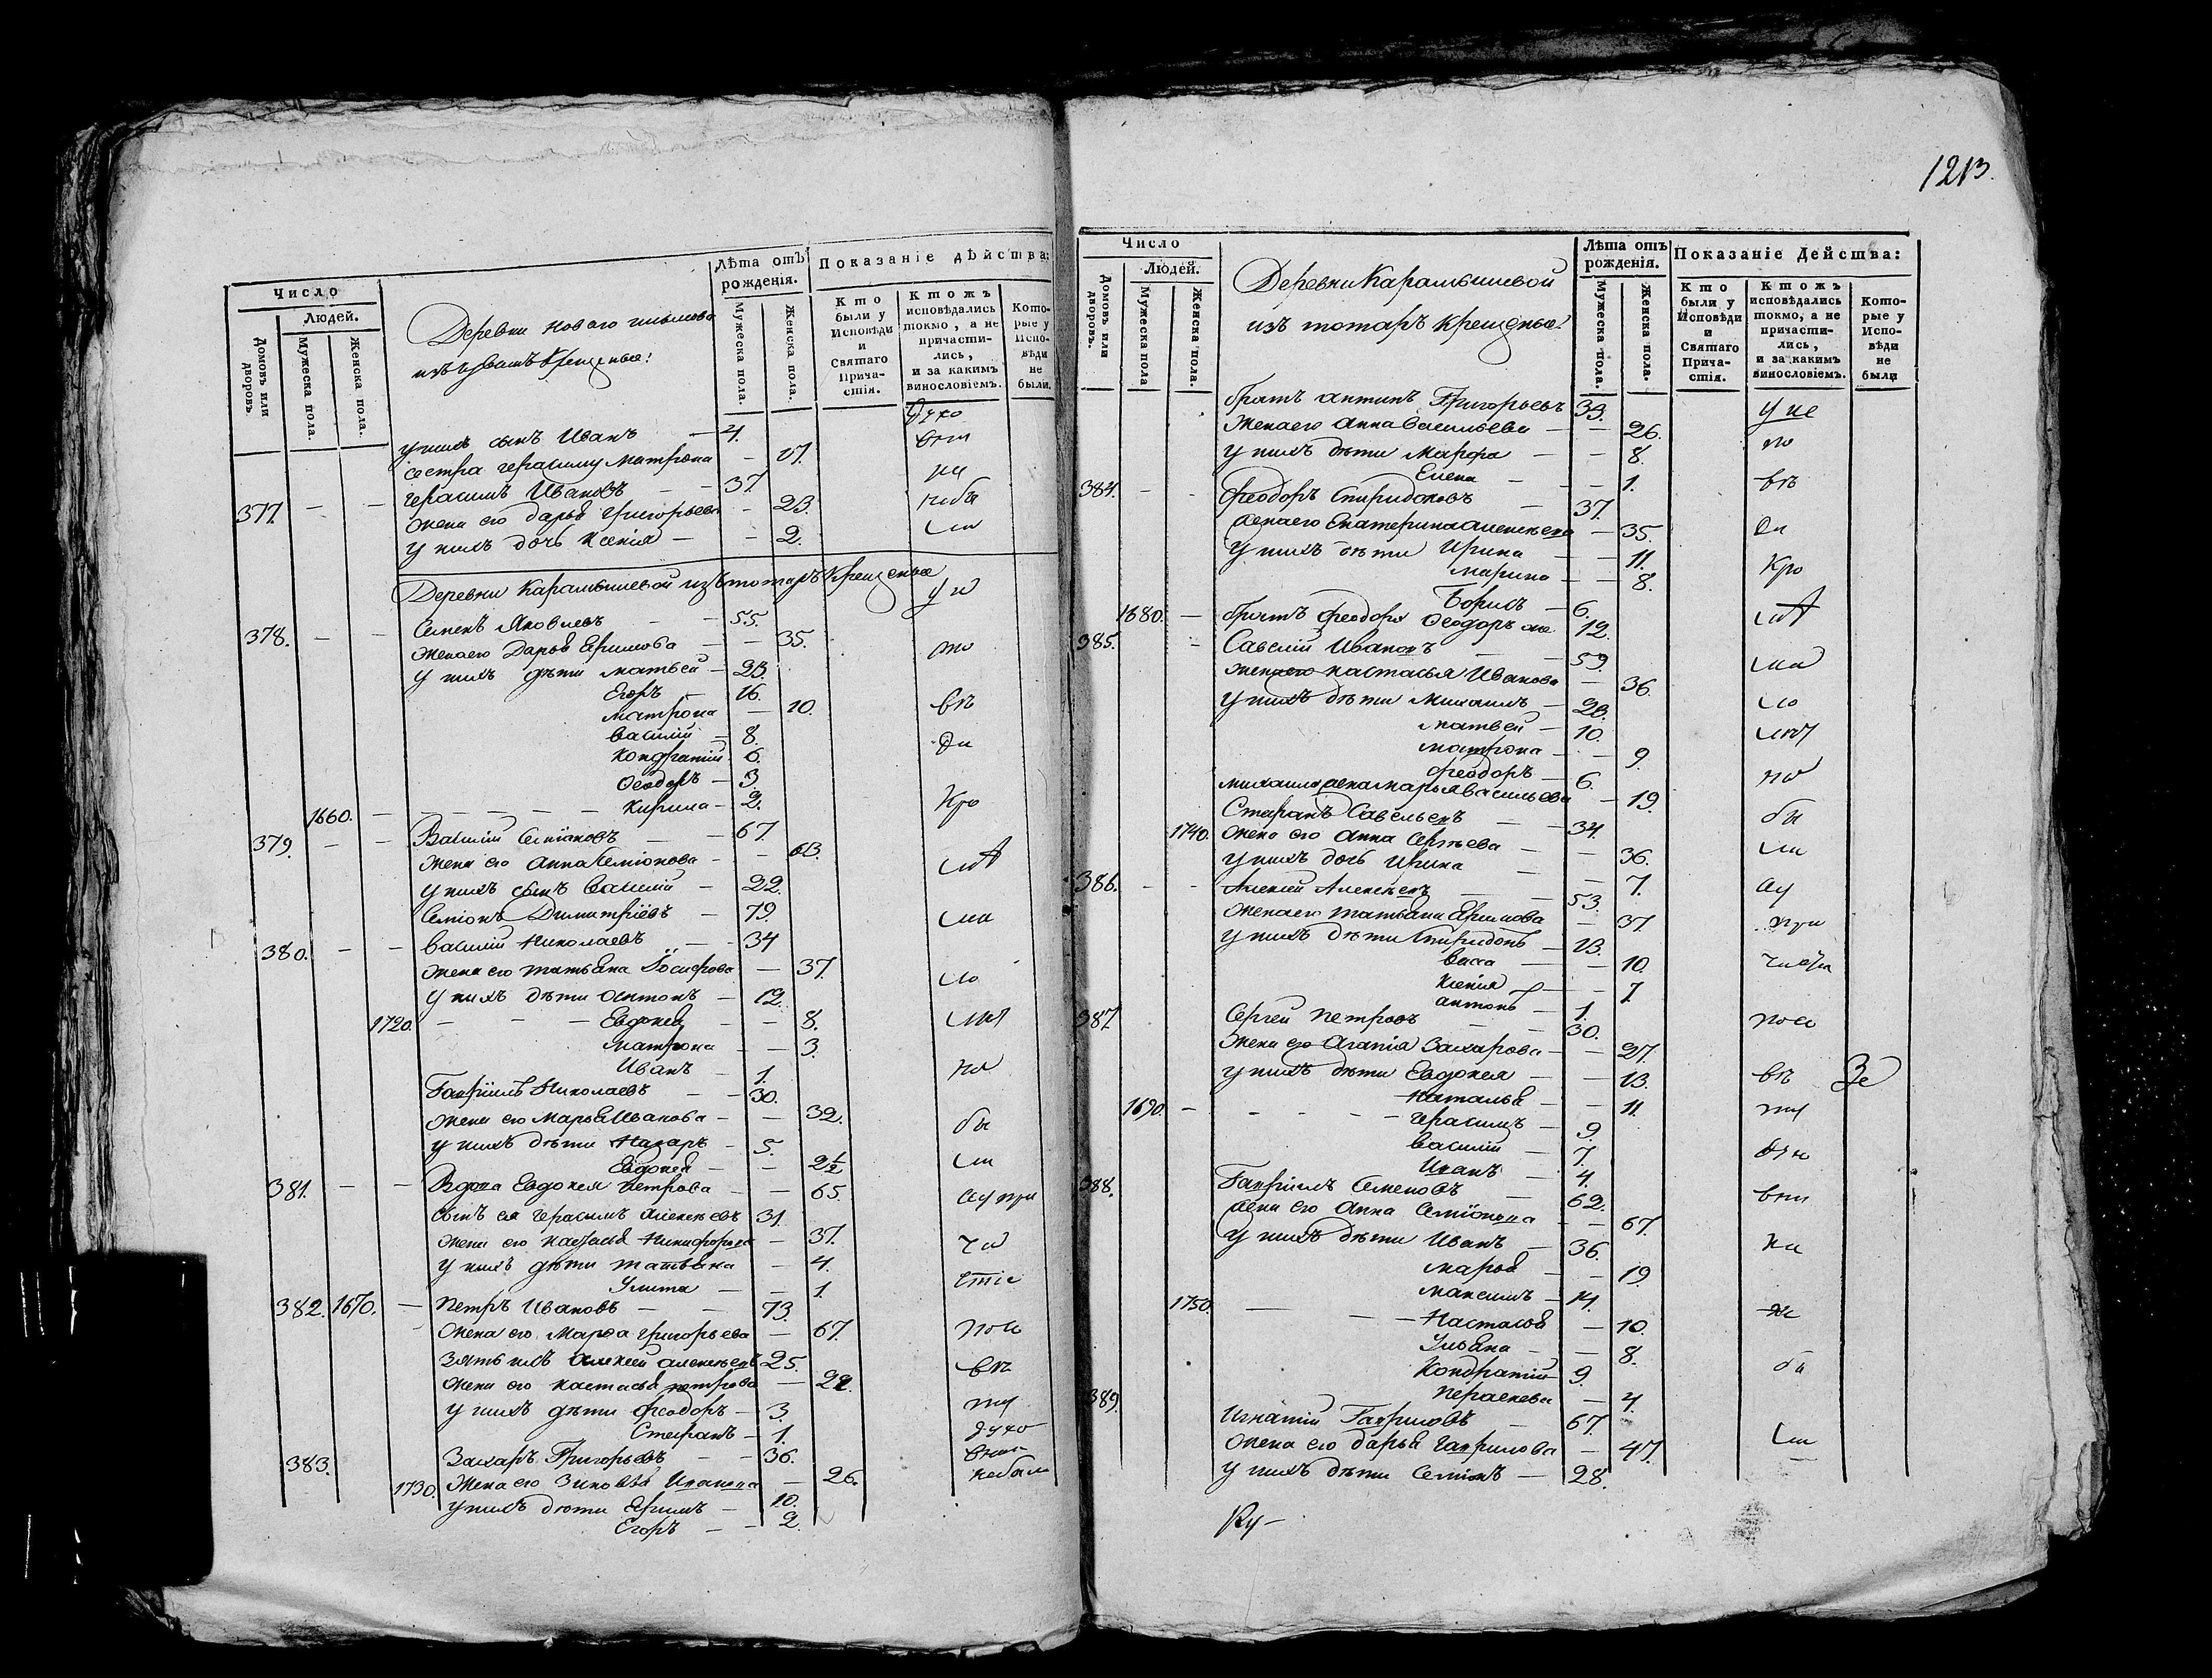 Число
Людей.
Домовъ или дворовъ.
Мужеска пола.
Женска пола.
Деревни Нового
крещеные:
Лѣта отъ рожденія.
Мужеска пола.
Женска пола.
Показаніе дѣйства:
Кто были у Исповѣди и Святаго Причастія.
Ктожъ исповѣдались токмо, а не причастились, и за какимъ винословіемъ.
Которые у Исповѣди не были.
у нихъ сынъ Иванъ — 4.
сестра Герасиму Матрона — 17.
377. — — Герасимъ Ивановъ — 37.
жена его дарья Григорьева — 23.
у нихъ дочь Ксенія — 2.
Деревни Карамышевой изъ тотаръ крещеные
378. — — Семенъ Яковлевъ — 55.
жена его Дарья Ефимова — 35.
у нихъ дѣти матвей — 23.
Егоръ — 16.
матрона — 10.
василий — 8.
Кондратий 6.
Ѳеодоръ — 3.
1660. — Кирила — 2.
379. — — Василий Семіоновъ — 67.
жена его Анна Семіонова — 63.
у нихъ сынъ Василий — 22.
Семіонъ Димитріевъ — 79.
380. — — Василий Николаевъ — 34
жена его татьяна Іосифова — 37.
у нихъ дѣти Антонъ — 12.
1720. — — Евдокея — 8.
Матрона — 3.
Иванъ — 1.
Гаврiилъ Николаевъ — 30.
жена его Марья Иванова — 32.
у нихъ дѣти Назаръ — 5.
Евдокея — 2½
381. — — Вдова Евдокея Петрова — 65.
сынъ ея Герасимъ Алексеевъ 31.
жена его настасья Никифорова — 37.
у нихъ дѣти татьяна — 4.
Улита — 1.
382. 1670. — Петръ Ивановъ — 73.
жена его Марѳа Григорьева — 67.
зять ихъ Алексей Алексеевъ 25.
жена его настасья петрова — 22.
у нихъ дѣти Феодоръ — 3.
Стефанъ — 1.
383. Захаръ Григорьевъ — 36.
1730. Жена его Зиновья Иванова — 26.
у нихъ дѣти Ефимъ — 10.
Егоръ — 2.
1213.
Число
Людей.
Домовъ или дворовъ.
Мужеска пола
Женска пола.
Деревни Карамышевой
изъ тотаръ крещеные:
Лѣта отъ рожденія.
Мужеска пола.
Женска пола.
Показаніе Дейсmва:
Кто были у Исповѣди и Святаго Причастія.
Ктожъ исповѣдались токмо, а не причастились, и за какимъ винословіемъ.
Которые у Исповѣди не были
братъ антипъ Григорьевъ 33.
жена его анна васильева — 26.
у нихъ дѣти Марѳа — 8.
Елена — 1.
384. — — Феодоръ Спиридоновъ — 37.
жена его Екатерина алексеева — 35.
у нихъ дѣти Ирина — 11.
марина — 8.
Борисъ — 6.
1680. — братъ Феодора Ѳеодоръ же 12.
385. — Савелій Ивановъ — 59.
жена его настасья Иванова — 36.
у нихъ дѣти Михаилъ — 23.
матвей — 10.
матрона — 9.
феодоръ — 6.
михаила жена марья васильева — 19.
Стефанъ Савельевъ — 34.
1740. жена его Анна Сергѣева — 36.
у нихъ дочь Ирина — 7.
386. — — Алексей Алексеевъ — 53.
жена его татьяна Ефимова — 37
у нихъ дѣти Спиридонъ — 13.
Васса — 10.
Ксенія — 7
антонъ — 1.
387. Сергей Петровъ — 30.
жена его Агапія Захарова — 27.
у нихъ дѣти Евдокея — 13.
Наталья — 11.
1690. — Герасимъ — 9.
василий — 7.
Иванъ — 4.
388. Гаврiилъ Семеновъ — 62.
жена его Анна Семіонова — 67.
у нихъ дѣти Иванъ — 36.
марья — 19
максимъ — 14.
1750. — Настасья — 10.
Ульяна — 8.
Кондратий 9.
перасковья — 4.
389. Игнатий Гавриловъ — 67.
жена его дарья гаврилова — 47.
у нихъ дѣти Семіонъ — 28.